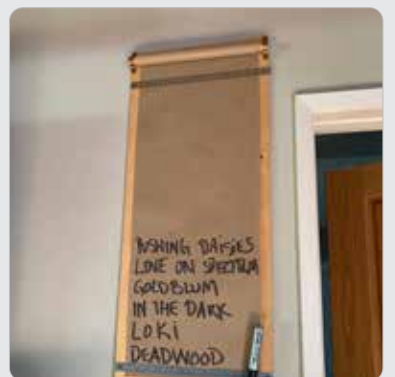 PUSHING DAISIES
LOVE ON SPECTRUM
GOLDBLUM
IN THE DARK
LOKI
DEADWOOD